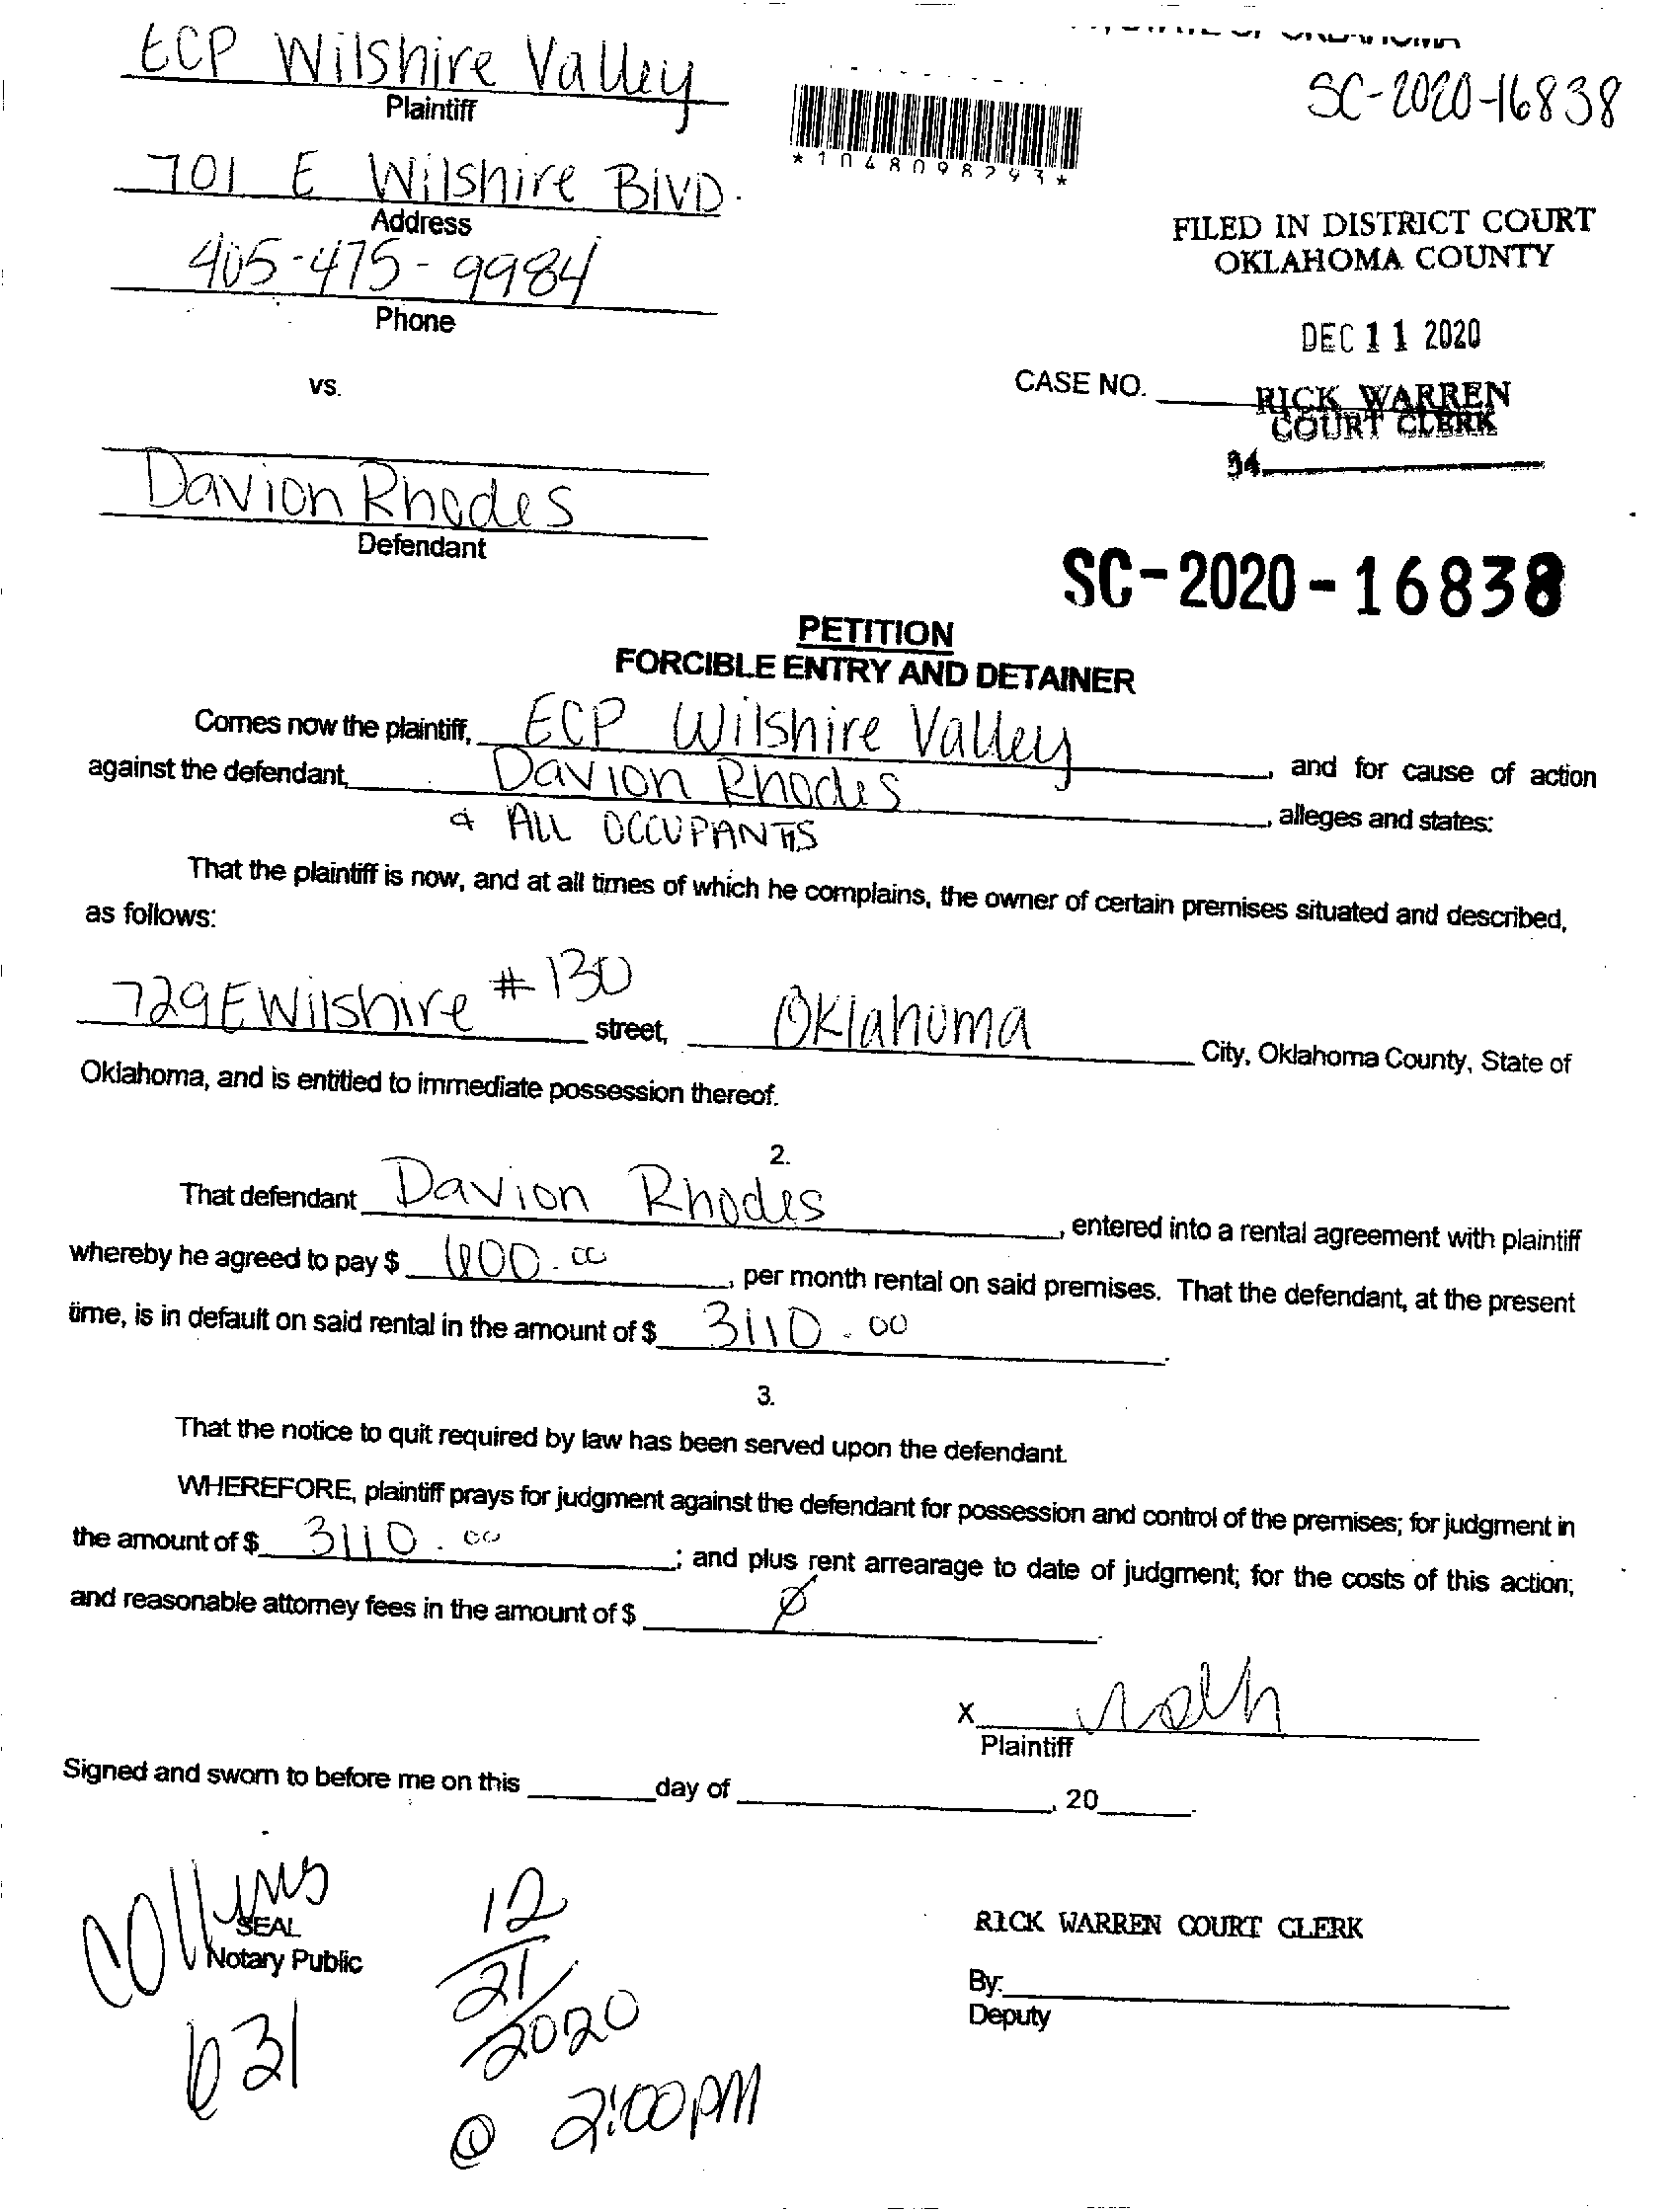 ECP Wilshire Valley
Plaintiff
SC-2020-16838
701 E Wilshire BLVD.
Address
*1048098293*
405-475-9984
Phone
FILED IN DISTRICT COURT
OKLAHOMA COUNTY
DEC 11 2020
vs.
CASE NO.
RICK WARREN
COURT CLERK
34
Davion Rhodes
Defendant
SC-2020-16838
PETITION
FORCIBLE ENTRY AND DETAINER
Comes now the plaintiff, ECP Wilshire Valley, and for cause of action
against the defendant, Davion Rhodes, alleges and states:
& ALL OCCUPANTS
That the plaintiff is now, and at all times of which he complains, the owner of certain premises situated and described,
as follows:
729 E Wilshire #130 street, Oklahoma City, Oklahoma County, State of
Oklahoma, and is entitled to immediate possession thereof.
2.
That defendant Davion Rhodes, entered into a rental agreement with plaintiff
whereby he agreed to pay $ 600.00, per month rental on said premises. That the defendant, at the present
time, is in default on said rental in the amount of $ 3110.00.
3.
That the notice to quit required by law has been served upon the defendant.
WHEREFORE, plaintiff prays for judgment against the defendant for possession and control of the premises; for judgment in
the amount of $ 3110.00; and plus rent arrearage to date of judgment; for the costs of this action;
and reasonable attorney fees in the amount of $ Ø.
X
Plaintiff
Signed and sworn to before me on this day of , 20 .
Collins
SEAL
Notary Public
631
12/21/2020
@ 2:00PM
RICK WARREN COURT CLERK
By:
Deputy